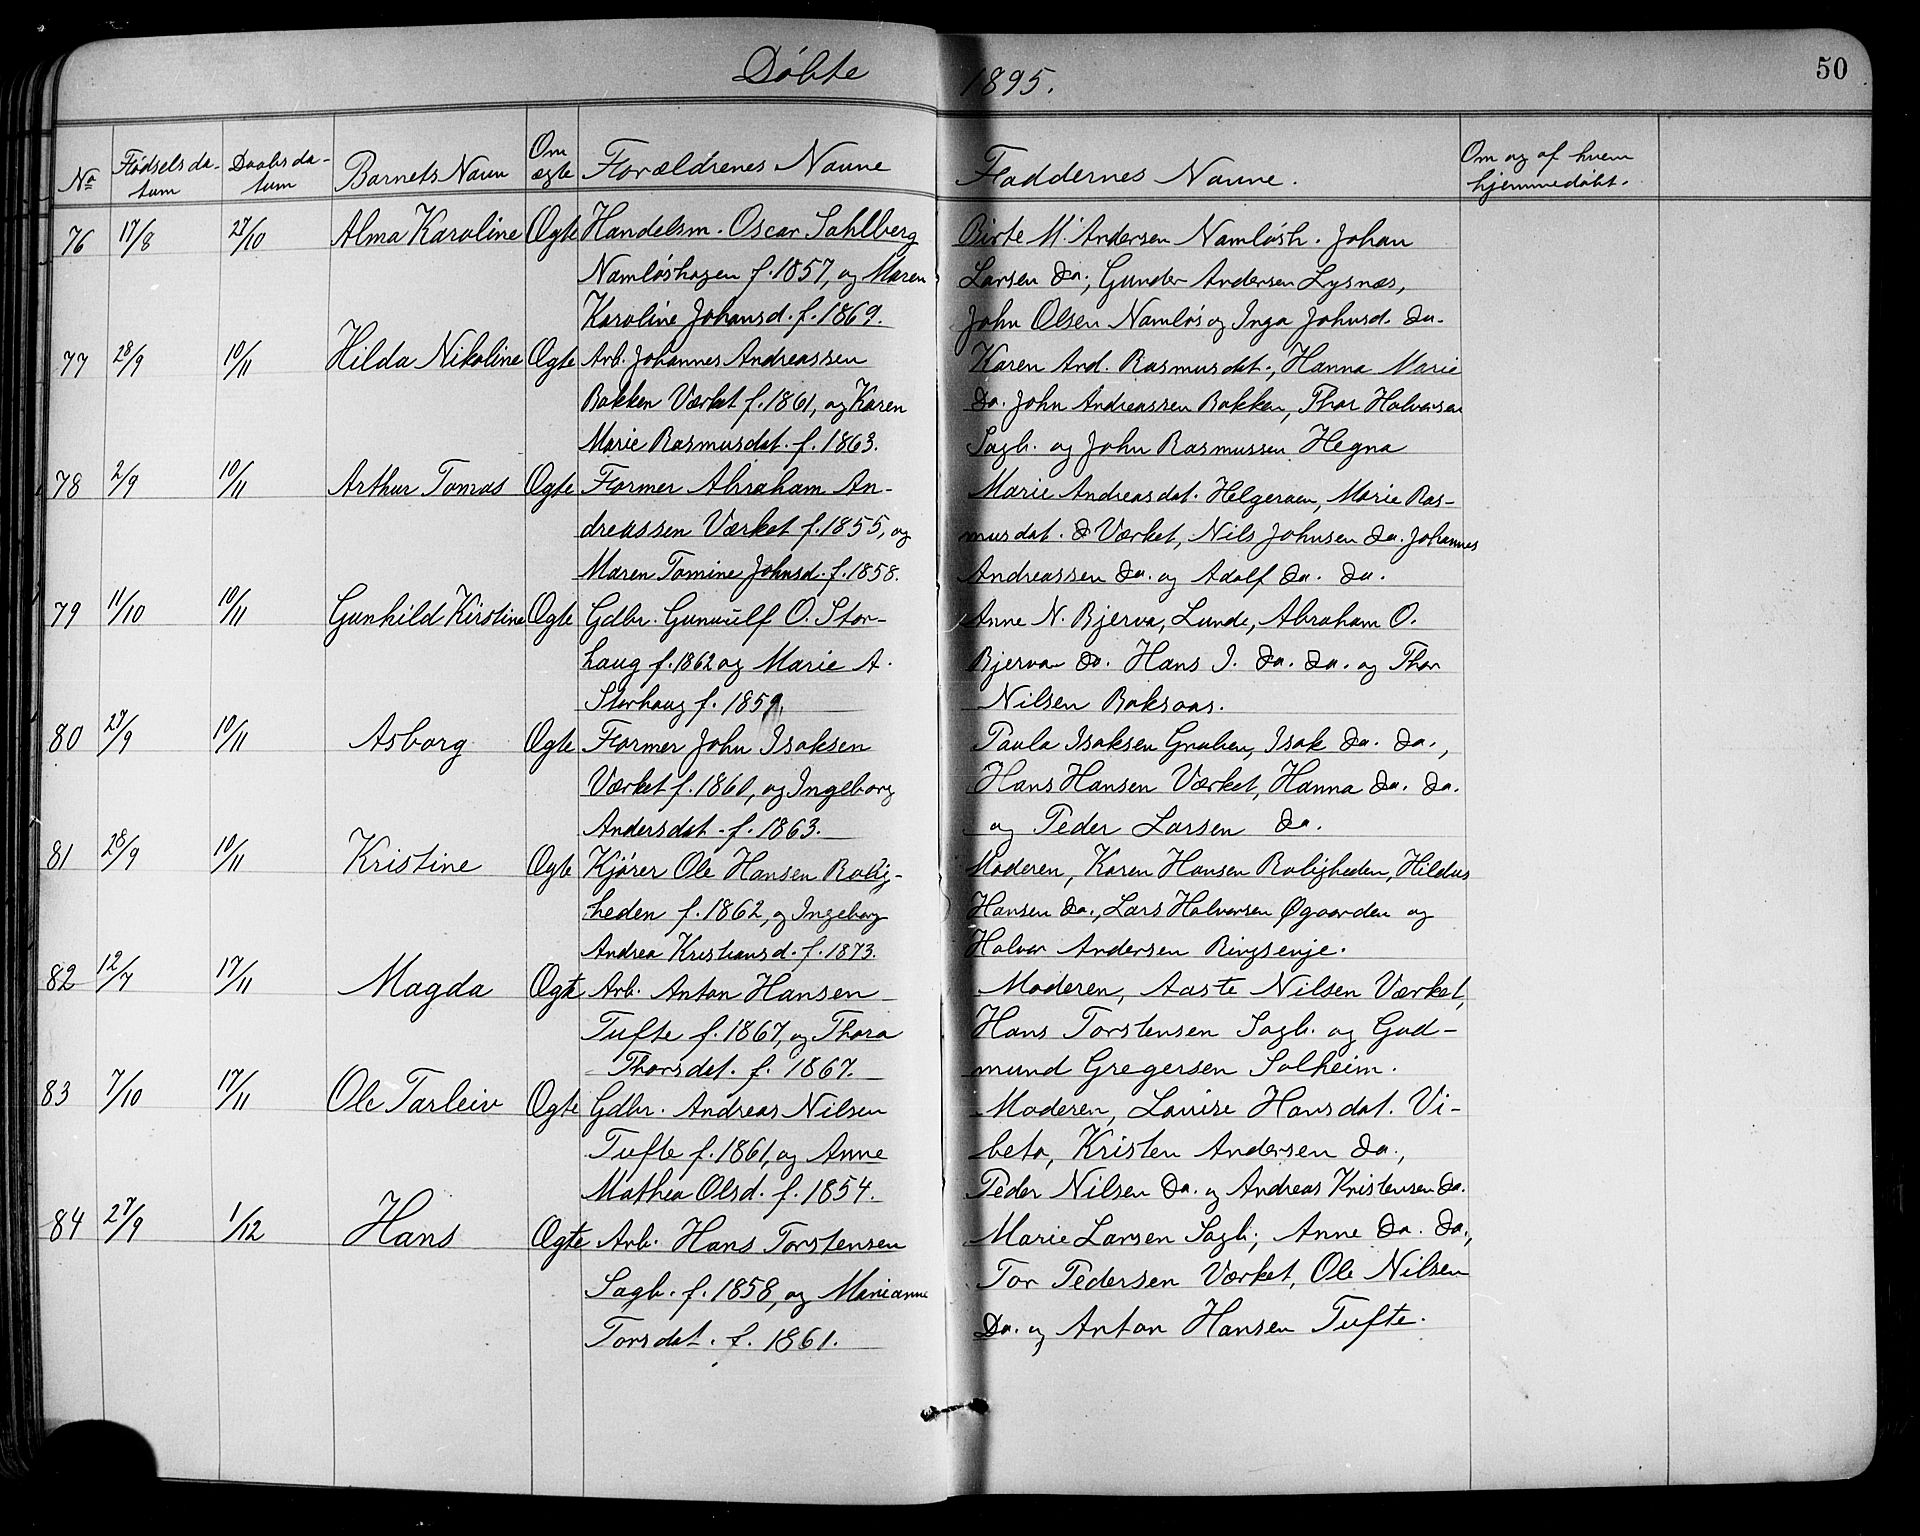 Døbte 1895.
50
No Fødselsda- Daabsda- Barnets Navn Om Forældrenes Navne Faddernes Navne. Om og af hvem
tum tum ægte hjemmedøbt.
76 17/8 27/10 Alma Karoline Ægte Handelsm. Oscar Sahlberg Birte M. Andersen Namløsh. Johan
Namløshagen f. 1857, og Maren Larsen do., Gunder Andersen Lysnæs,
Karoline Johansd. f. 1869. John Olsen Namløs og Inga Johnsd. do.
77 28/9 10/11 Hilda Nikoline Ægte Arb. Johannes Andreassen Karen And. Rasmusdat., Hanna Marie
Bakken Værket f. 1861, og Karen do. John Andreassen Bakken, Thor Halvorsen
Marie Rasmusdat. f. 1863. Sagb. og John Rasmussen Hegna
78 2/9 10/11 Arthur Tomas Ægte Former Abraham An- Marie Andreasdat. Helgeroen, Marie Ras-
dreassen Værket f. 1855, og musdat. Værket, Nils Johnsen do. Johannes
Maren Tomine Johnsd. f. 1858. Andreassen do. og Adolf do. do.
79 11/10 10/11 Gunhild Kirstine Ægte Gdbr. Gunnulf O. Stor- Anne N. Bjerva, Lunde, Abraham O.
haug f. 1862 og Marie A. Bjerva do. Hans I. do. do. og Thor
Storhaug f. 1859. Nilsen Baksaas.
80 27/9 10/11 Asborg Ægte Former John Isaksen Paula Isaksen Graben, Isak do. do.,
Værket f. 1860, og Ingeborg Hans Hansen Værket, Hanna do. do.
Andersdat. f. 1863. og Peder Larsen do.
81 28/9 10/11 Kristine Ægte Kjører Ole Hansen Rolig- Moderen, Karen Hansen Roligheden, Hildus
heden f. 1862, og Ingeborg Hansen do., Lars Halvorsen Øgaarden og
Andrea Kristiansd. f. 1873. Halvor Andersen Ringsevje.
82 12/7 17/11 Magda Ægte Arb. Anton Hansen Moderen, Aaste Nilsen Værket,
Tufte f. 1867, og Thora Hans Torstensen Sagb. og Gud-
Thorsdat. f. 1867. mund Gregersen Solheim.
83 7/10 17/11 Ole Tarleiv Ægte Gdbr. Andreas Nilsen Moderen, Lovise Hansdat. Vi-
Tufte f. 1861, og Anne beto, Kristen Andersen do.,
Mathea Olsd. f. 1854. Peder Nilsen do. og Andreas Kristensen do.
84 27/9 1/12 Hans Ægte Arb. Hans Torstensen Marie Larsen Sagb., Anne do. do.,
Sagb. f. 1858, og Marianne Tor Pedersen Værket, Ole Nilsen
Torsdat. f. 1861. do. og Anton Hansen Tufte.